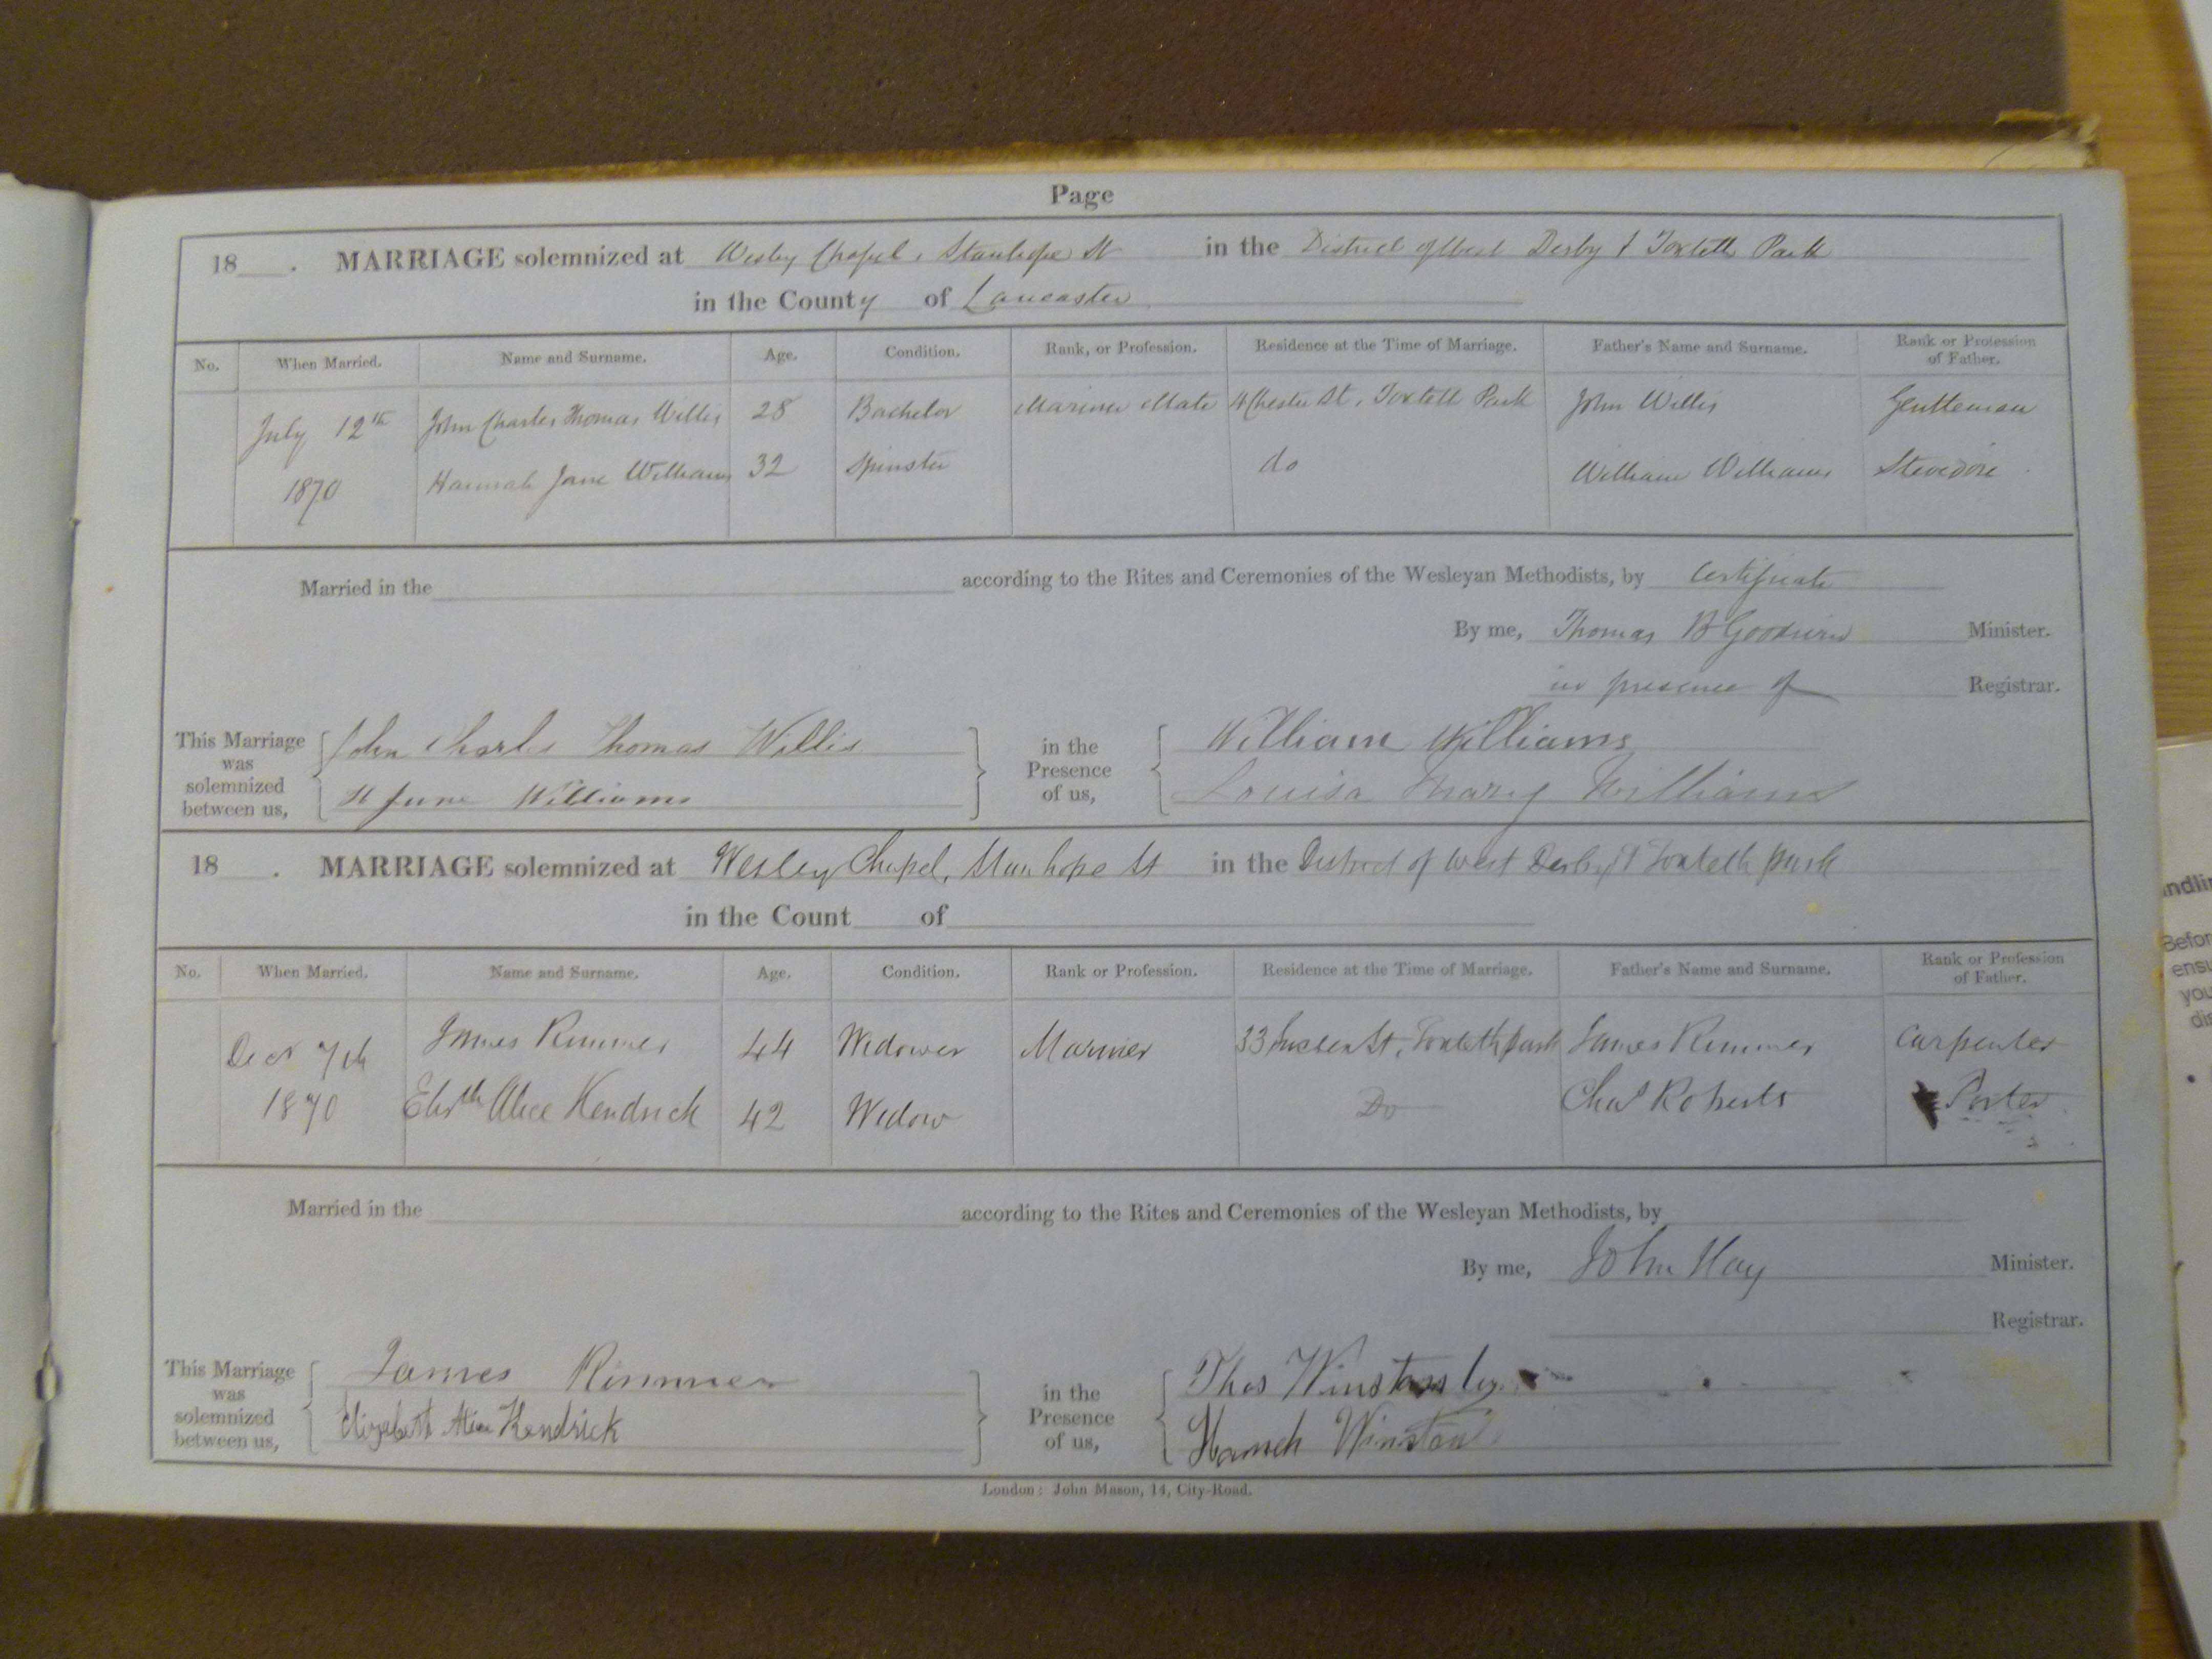 Page
18 . MARRIAGE solemnized at Wesley Chapel, Stanhope St in the District of West Derby & Toxteth Park
in the County of Lancaster
No. When Married. Name and Surname. Age. Condition. Rank, or Profession. Residence at the Time of Marriage. Father's Name and Surname. Rank or Profession of Father.
July 12th John Charles Thomas Willis 28 Bachelor Mariner Mate 4 Chester St, Toxteth Park John Willis Gentleman
1870 Hannah Jane Williams 32 Spinster do William Williams Stevedore
Married in the according to the Rites and Ceremonies of the Wesleyan Methodists, by Certificate
By me, Thomas B Goodwin Minister.
in presence of Registrar.
This Marriage was solemnized between us, John Charles Thomas Willis in the Presence of us, William Williams
H Jane Williams Louisa Mary Williams
18 . MARRIAGE solemnized at Wesley Chapel, Stanhope St in the District of West Derby & Toxteth park
in the Count of
No. When Married. Name and Surname. Age. Condition. Rank or Profession. Residence at the Time of Marriage. Father's Name and Surname. Rank or Profession of Father.
Decr 7th James Rimmer 44 Widower Mariner 33 St, Toxteth park James Rimmer Carpenter
1870 Elizth Alice Kendrick 42 Widow Do Chas Roberts Porter
Married in the according to the Rites and Ceremonies of the Wesleyan Methodists, by
By me, John Hay Minister.
Registrar.
This Marriage was solemnized between us, James Rimmer in the Presence of us, Thos Winstanley
Elizabeth Alice Kendrick Hannah
London: John Mason, 14, City-Road.